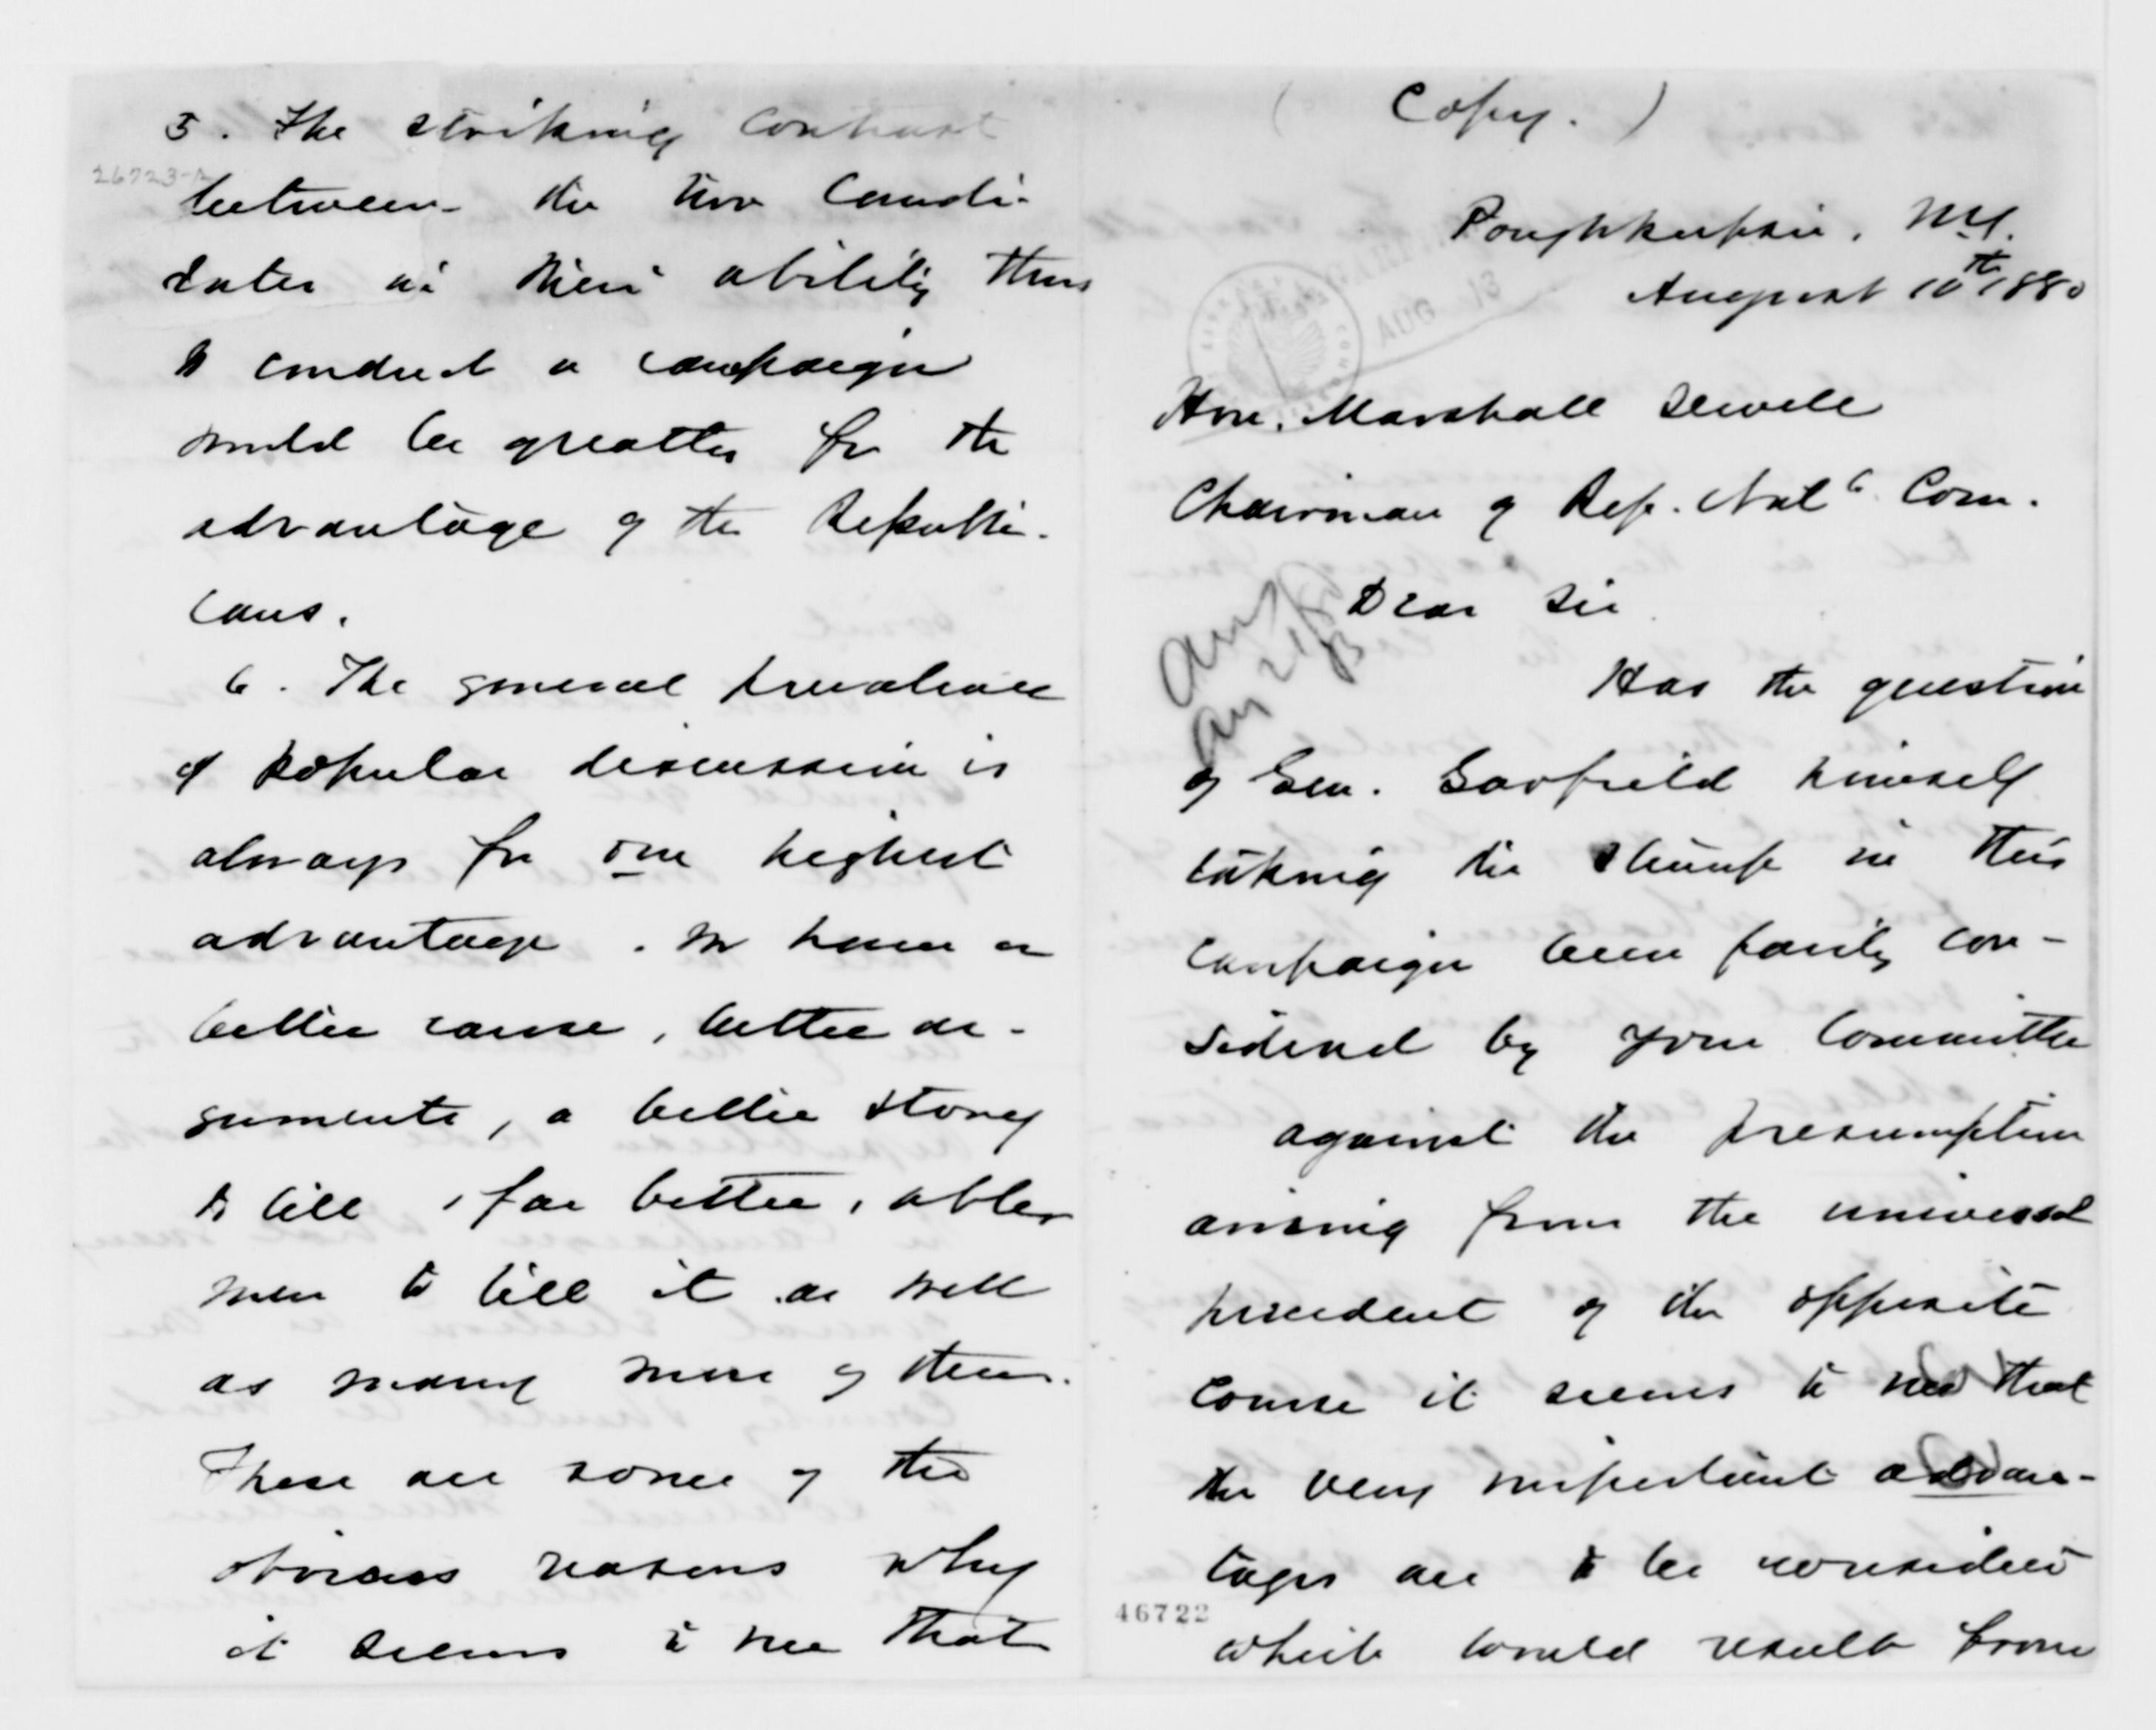 5. The striking contrast
26723-2
between the two candi-
dates in their ability thus
to conduct a campaign
would be greatly for the
advantage of the Republi-
cans.
6. The general prevalence
of popular discussion is
always for our highest
advantage. We have a
better cause, better ar-
guments, a better story
to tell, far better, abler
men to tell it as well
as many more of them.
These are some of the
obvious reasons why
it seems to me that
(Copy.)
Poughkeepsie, N.Y.
August 10th 1880
AUG 13
Hon. Marshall Jewell
Chairman of Rep. Natl. Com.
Dear Sir
Ansd
Aug 21
Has the question
of Gen. Garfield himself
taking the stump in this
campaign been fairly con-
sidered by your Committee
against the presumption
arising from the universal
precedent of the opposite
course it seems to me that
the very important advan-
tages are to be considered
which would result from
46722